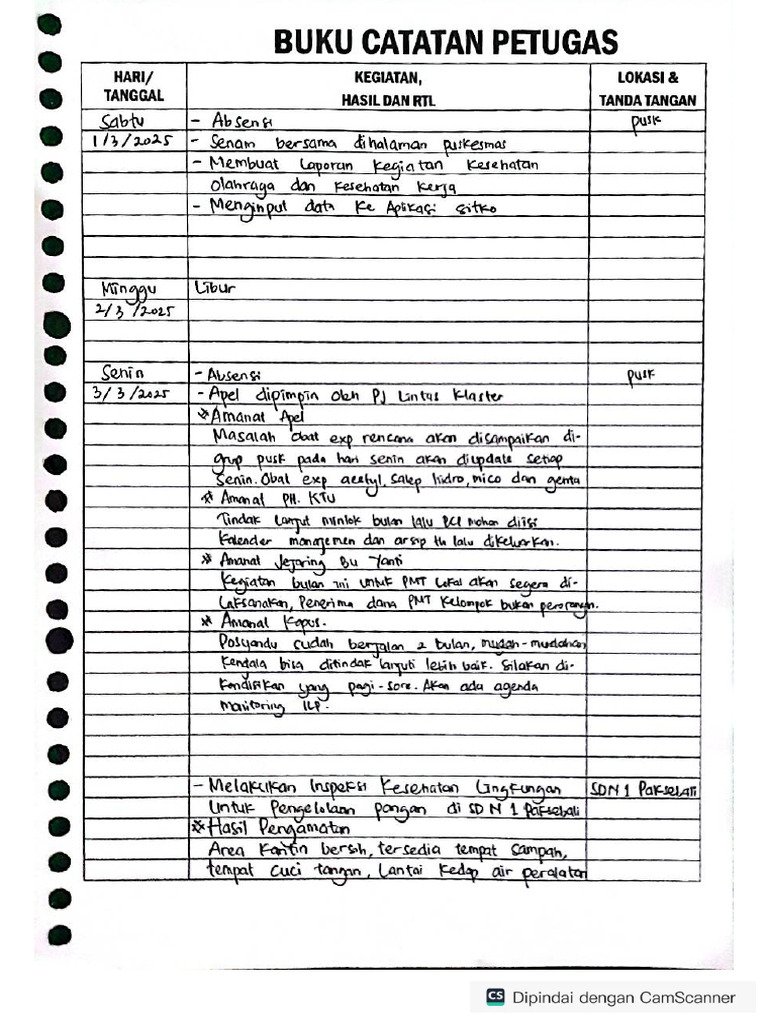 BUKU CATATAN PETUGAS
HARI/ TANGGAL
KEGIATAN, HASIL DAN RTL
LOKASI & TANDA TANGAN
Sabtu - Absensi pusk
1/3/2025 - Senam bersama dihalaman puskesmas
- Membuat Laporan Kegiatan Kesehatan
Olahraga dan Kesehatan Kerja
- Menginput data Ke Aplikasi sitko
Minggu Libur
2/3/2025
Senin - Absensi pusk
3/3/2025 - Apel dipimpin oleh PJ Lintas Klaster
* Amanat Apel
Masalah obat exp rencana akan disampaikan di-
grup pusk pada hari senin akan diupdate setiap
Senin. Obat exp acetyl, salep hidro, mico dan genta
* Amanat PH. KTU
Tindak lanjut minlok bulan lalu mohon diisi
Kalender managemen dan arsip th lalu dikeluarkan.
* Amanat Jejaring Bu Yanti
Kegiatan bulan ini untuk PMT Lokal akan segera di-
Laksanakan, Penerima dana PMT Kelompok bukan perorangan.
* Amanat Kapus.
Posyandu sudah berjalan 2 bulan, mudah-mudahan
Kendala bisa ditindak lanjuti lebih baik. Silakan di-
Kondisikan yang pagi-sore. Akan ada agenda
monitoring ILP.
- Melakukan Inspeksi Kesehatan Lingkungan SDN 1 Paksebali
Untuk Pengelolaan pangan di SD N 1 Paksebali
* Hasil Pengamatan
Area Kantin bersih, tersedia tempat sampah,
tempat cuci tangan, Lantai Kedap air peralatan
CS Dipindai dengan CamScanner